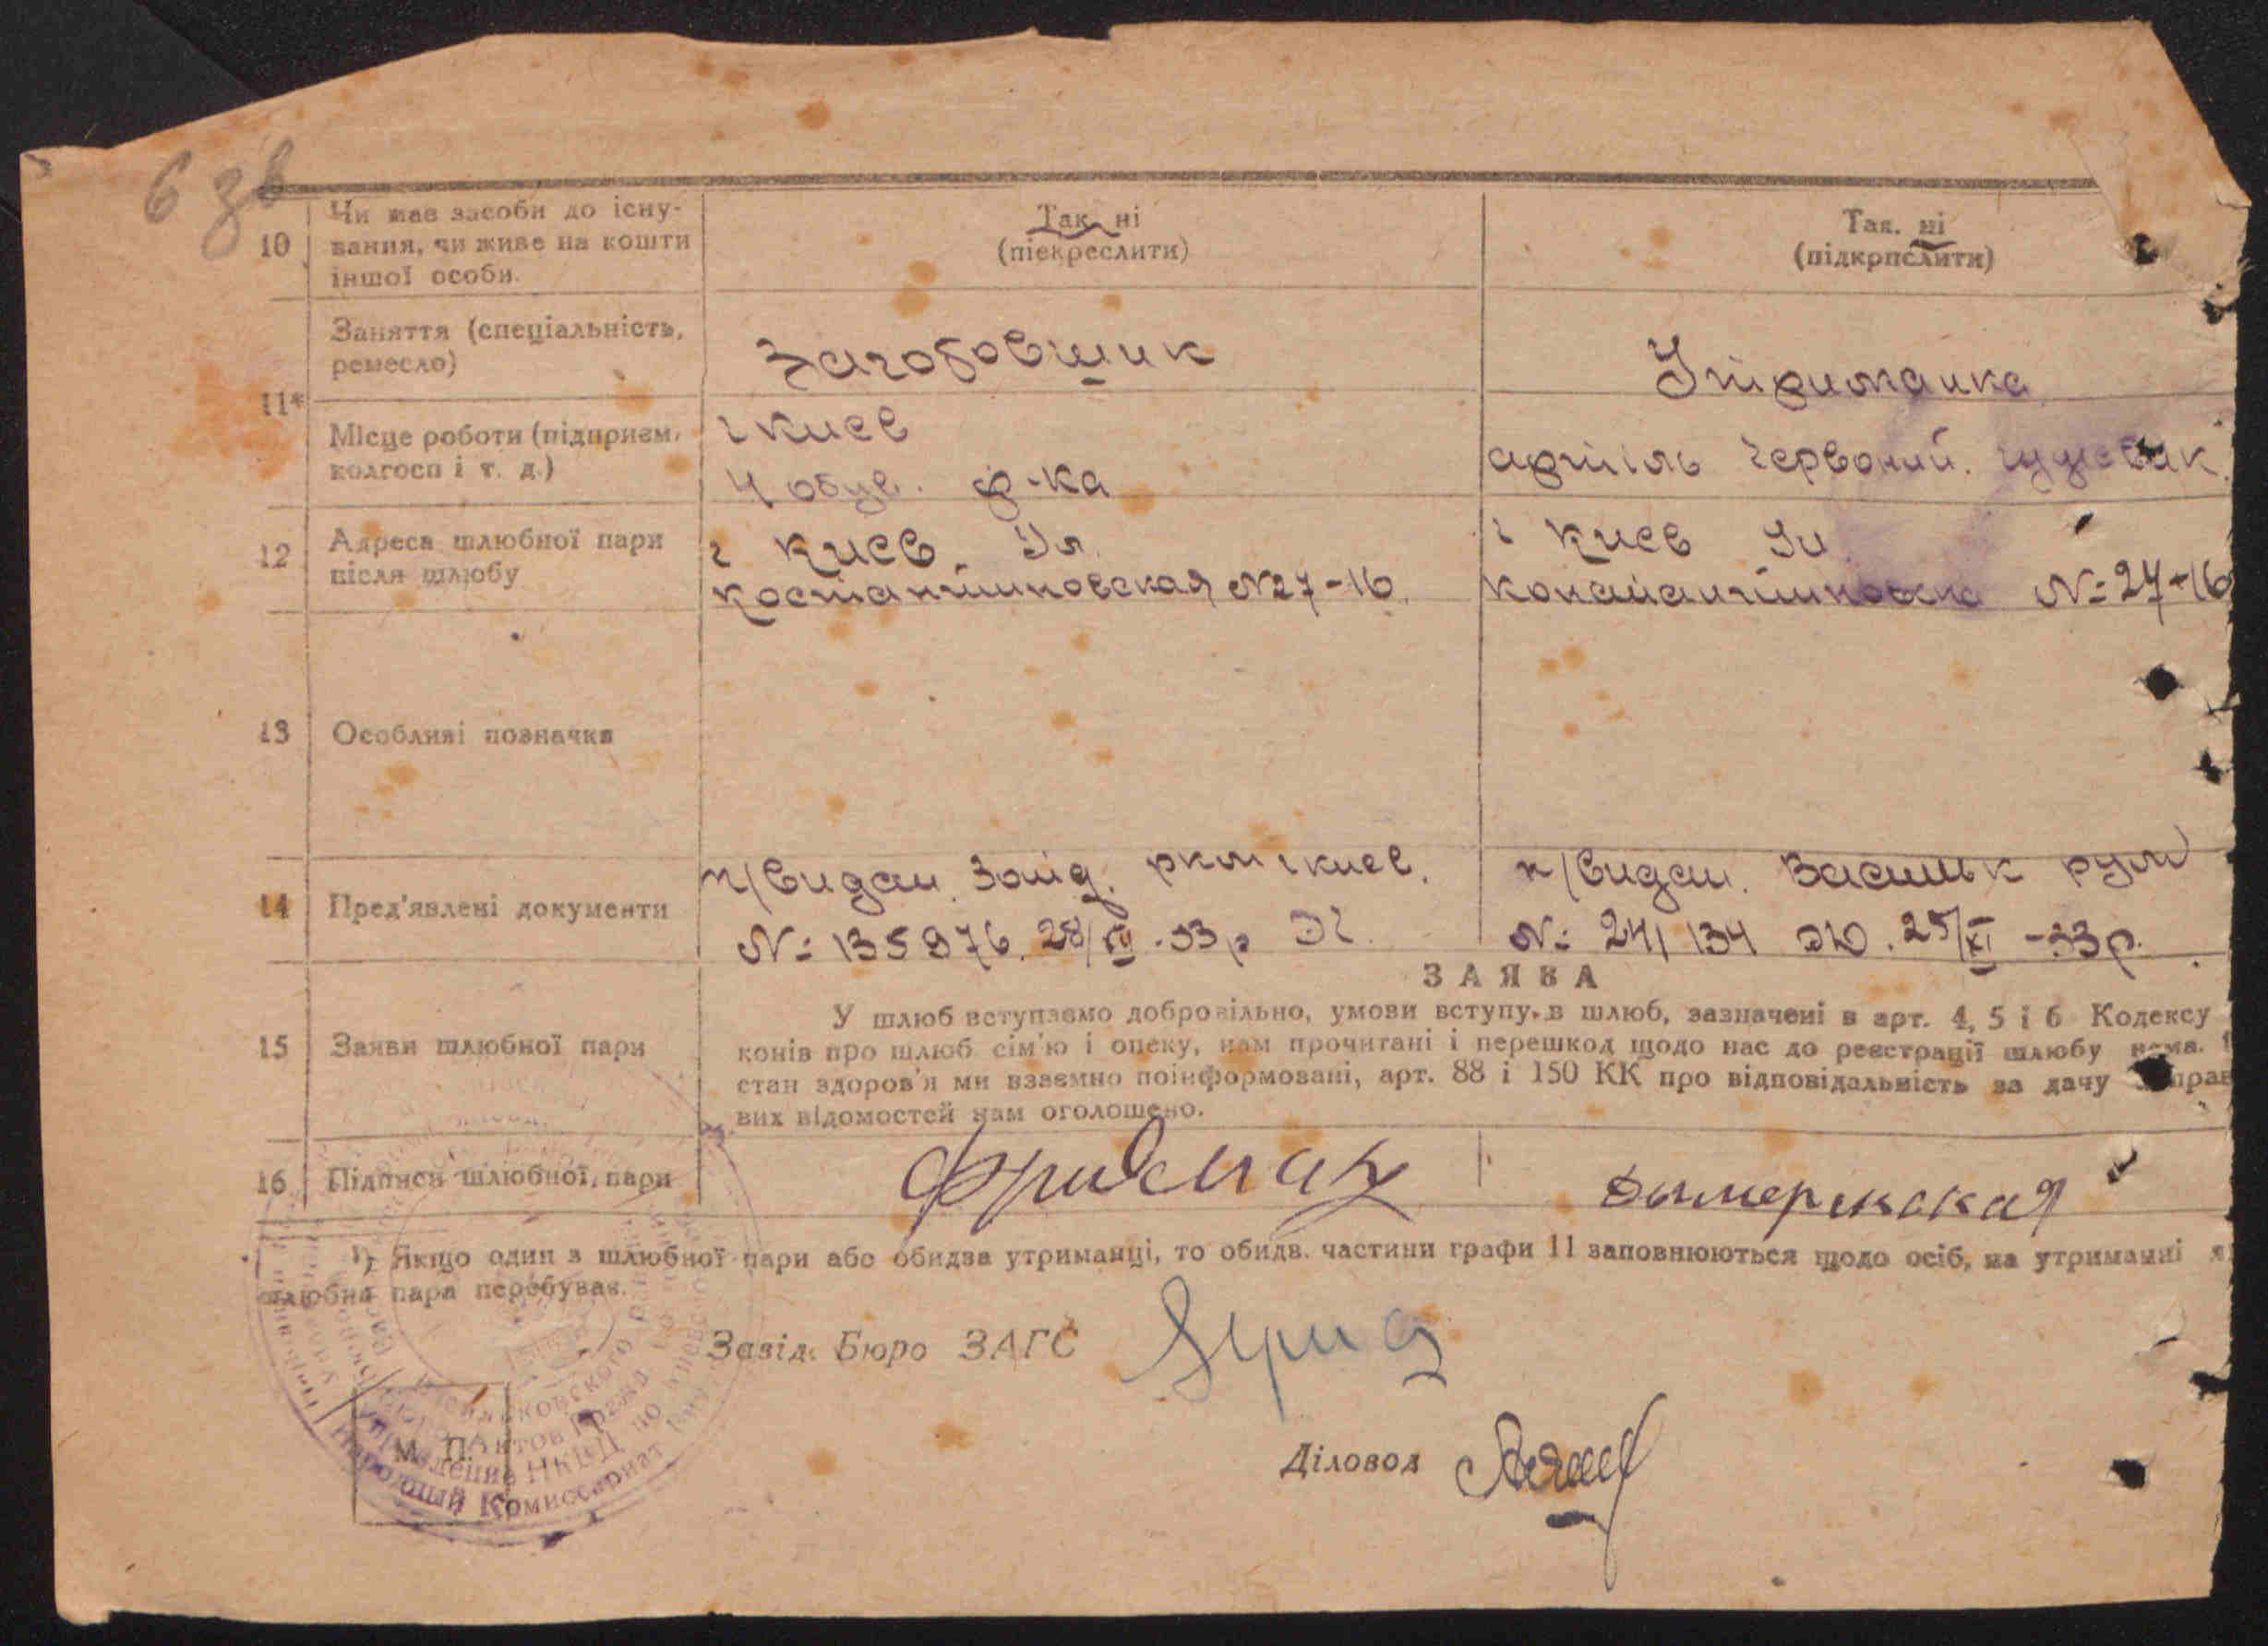 6 зв
10
Чи має засоби до існу-
вання, чи живе на кошти
іншої особи.
Так, ні
(піекреслити)
Так. ні
(підкрпслити)
11*
Заняття (спеціальність,
ремесло)
Заготовщик
Утриманка
Місце роботи (підприєм.
колгосп і т. д.)
г Киев
4 обув. ф-ка
артіль Червоний.
12
Адреса шлюбної пари
після шлюбу
г Киев Ул.
Костантиновская №27-16.
г Киев Ул
№ 27-16
13
Особливі позначки
14
Пред'явлені документи
п/видан. РКМ г Киев.
№ 135976. 28/ -33р ЭГ.
п/видан. Васильк
№ 241134 ЭЮ. 25/XI -33р.
15
Заяви шлюбної пари
ЗАЯВА
У шлюб вступаємо добровільно, умови вступу в шлюб, зазначені в арт. 4, 5 і 6 Кодексу
конів про шлюб сім'ю і опеку, нам прочитані і перешкод щодо нас до реєстрації шлюбу нема.
стан здоров'я ми взаємно поінформовані, арт. 88 і 150 КК про відповідальність за дачу
вих відомостей нам оголошено.
16
Підписи шлюбної пари
Фридман
Дымерская
¹) Якщо один з шлюбної пари або обидва утриманці, то обидв. частини графи 11 заповнюються щодо осіб, на утриманні я
шлюбна пара перебуває.
Завід. Бюро ЗАГС
Діловод
М. П.
Народный Комиссариат
Управление НКВД по
Актов Гражд